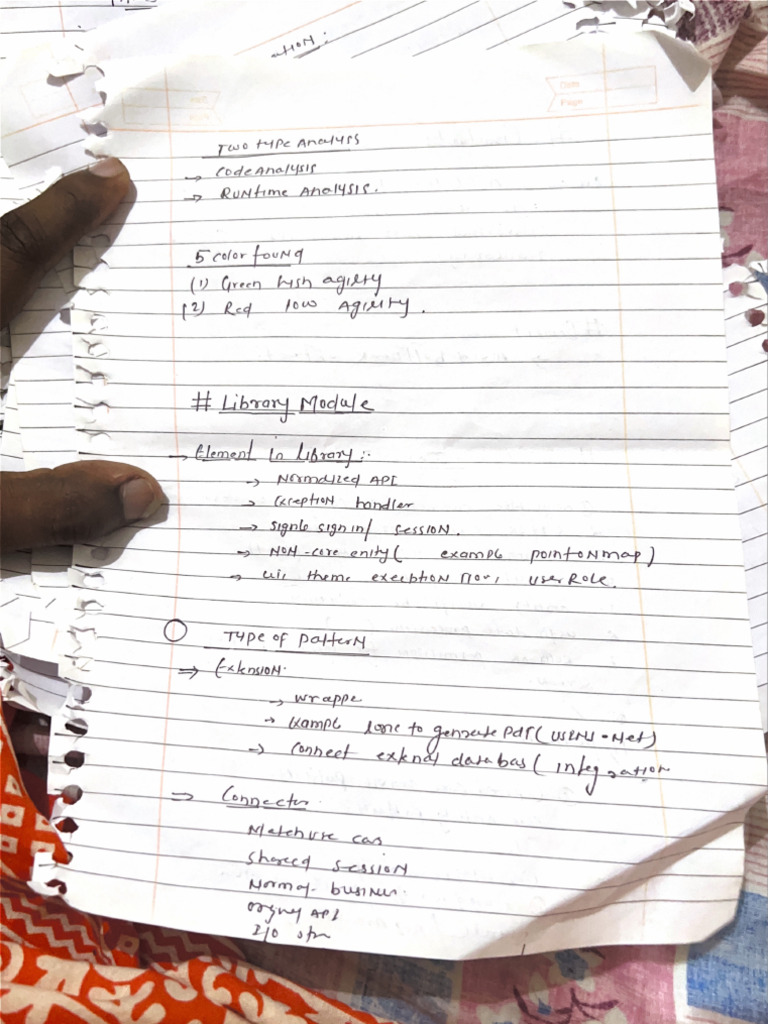 ATION:
Date
Page
TWO TYPE ANALYSIS
→ Code Analysis
→ RUNtime ANALYSIS.
5 color fouNd
(1) Green high agility
(2) Red low Agility.
# Library Module
→ Element in library:-
→ Normalized API
→ Exception handler
→ sign in/ session.
→ NON-core enity( example pointONmap)
→ theme exception flow, user Role.
Type of Pattern
⇒ Extension.
→ wrappe
→ Example to generate Pdf( .Net)
→ Connect external databas( integration
⇒ Connector
Match use cas
Shared session
Normal- business.
API
I/O